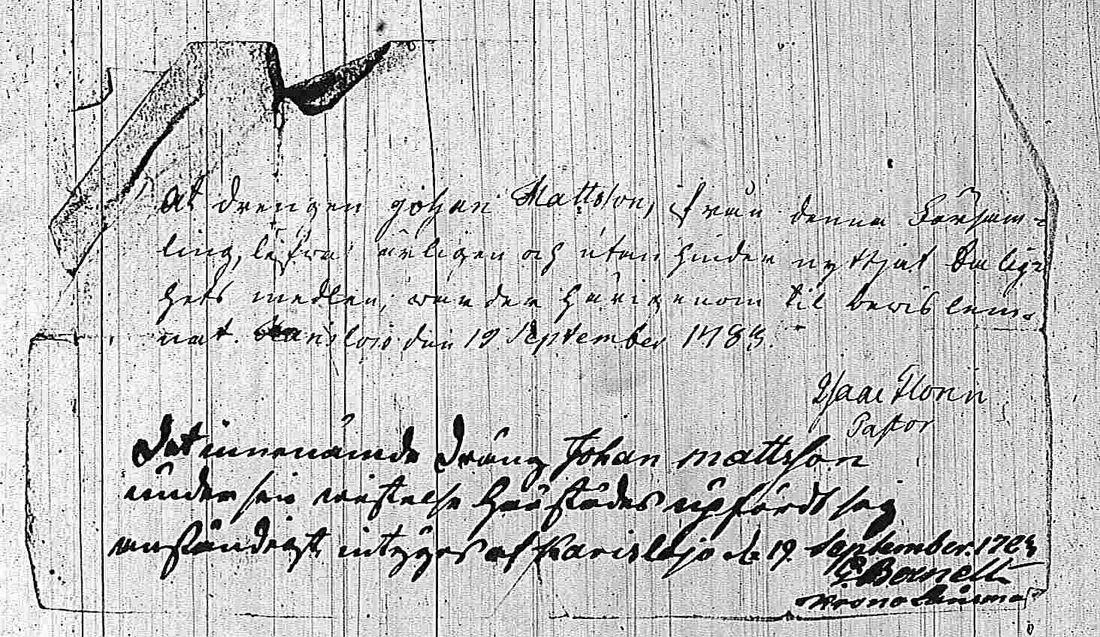 At drengen Johan Mattsson, ifrån denna Försam-
ling, lefvat ärligen och utan hinder nyttjat Salig-
hets medlen, warder härigenom til bewis lem-
nat. Karislojo den 19 September 1783.
Isaac Florin
Pastor
Det innenämde Dräng Johan Mattsson
under sin wistelse härstädes upfördt sig
anständigt, intygas af Karislojo d. 19 September 1783
Krono Länsman